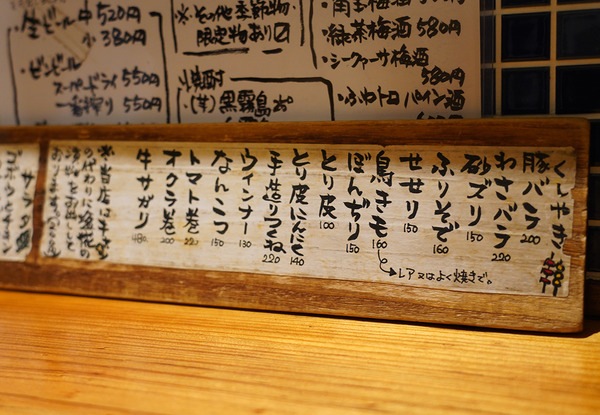 ・生ビール 中520円
小380円
・ビンビール
スーパードライ 550円
一番搾り 550円
※その他季節物・
限定物あり
・焼酎
・(芋)黒霧島
・緑茶梅酒 580円
・シークァーサー梅酒
580円
・ふわトロパイン酒
くしやき
豚バラ 200
わさバラ 220
砂ズリ 150
ふりそで 160
せせり 150
鳥きも 160
レア又はよく焼きで。
ぼんぢり 150
とり皮 100
とり皮にんにく 140
手造りつくね 220
ウインナー 130
なんこつ 150
トマト巻 220
オクラ巻 200
牛サガリ 480
※当店は
の代わりに